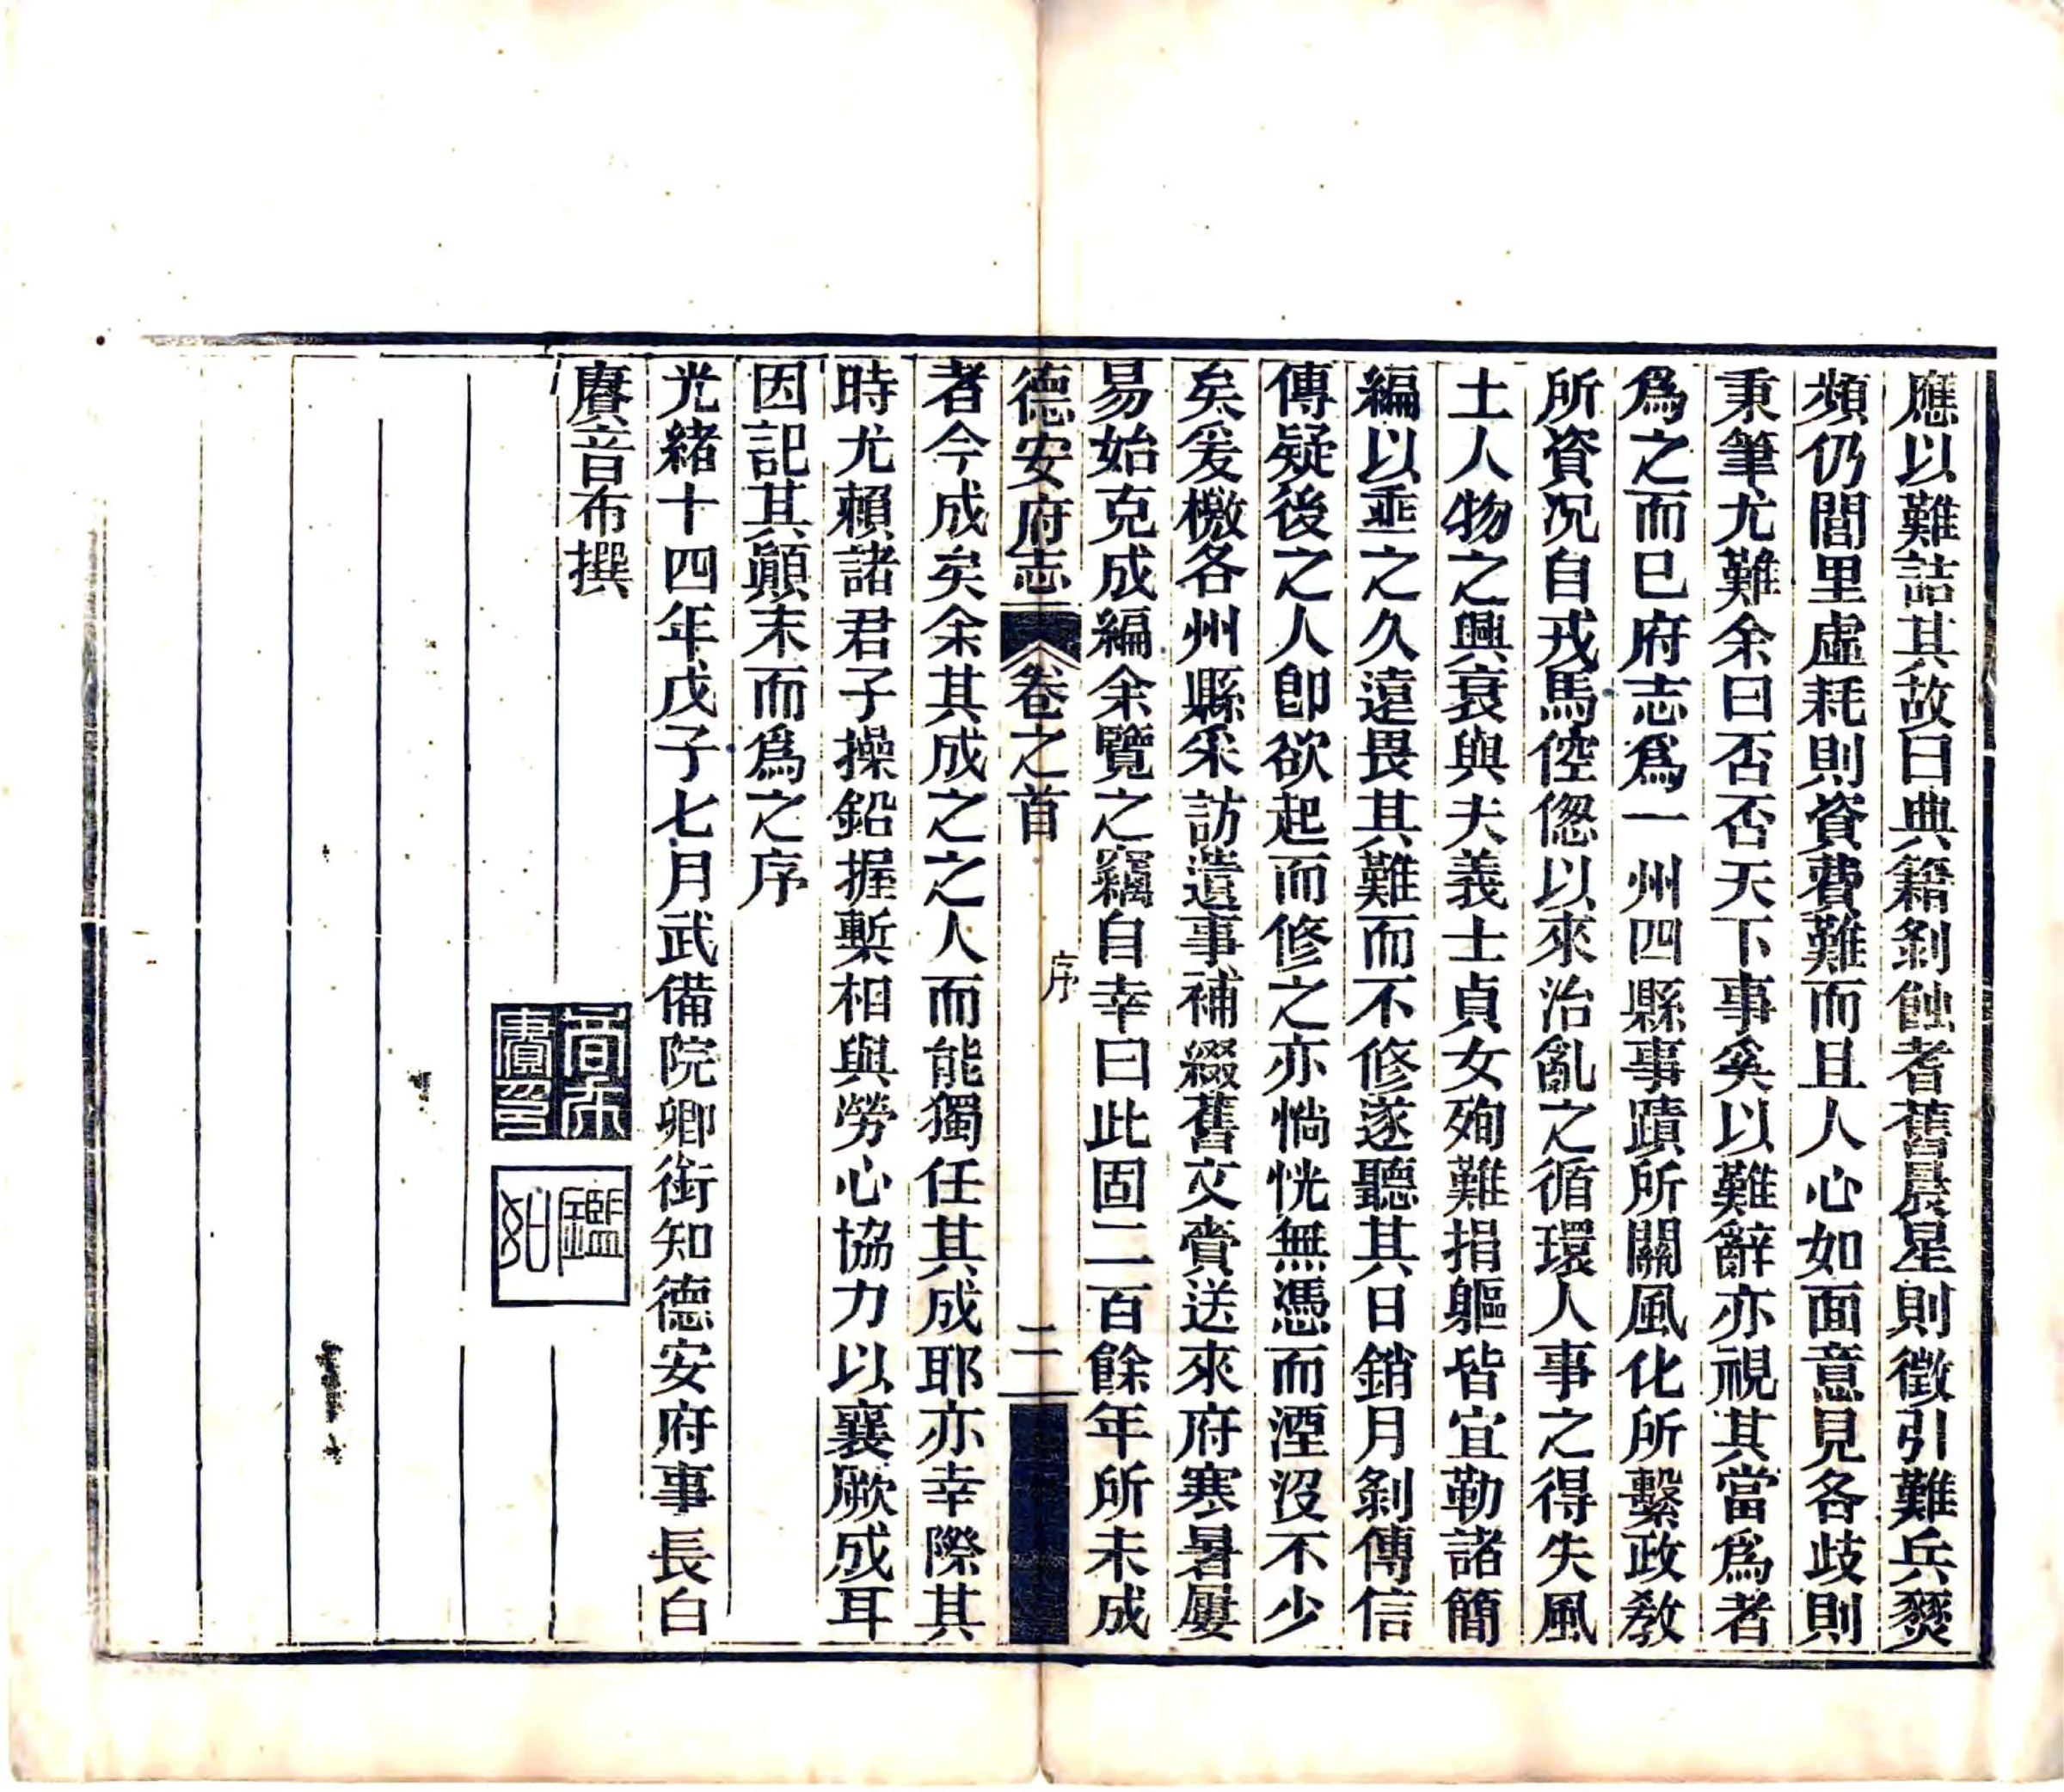 應以難詰其故曰典籍剝蝕耆舊晨星則徵引難兵燹
頻仍閭里虛耗則資費難而且人心如面意見各歧則
秉筆尤難余曰否否天下事奚以難辭亦視其當爲者
爲之而已府志爲一州四縣事蹟所關風化所繫政敎
所資況自戎馬倥傯以來治亂之循環人事之得失風
土人物之興衰與夫義士貞女殉難捐軀皆宜勒諸簡
編以垂之久遠畏其難而不修遂聽其日銷月剝傳信
傳疑後之人卽欲起而修之亦惝恍無憑而湮沒不少
矣爰檄各州縣采訪遺事補綴舊文賫送來府寒暑屢
易始克成編余覽之竊自幸曰此固二百餘年所未成
德安府志 卷之首 序 二
者今成矣余其成之之人而能獨任其成耶亦幸際其
時尤賴諸君子操鉛握槧相與勞心協力以襄厥成耳
因記其顚末而爲之序
光緒十四年戊子七月武備院卿銜知德安府事長白
賡音布撰
音布賡印
鑑如